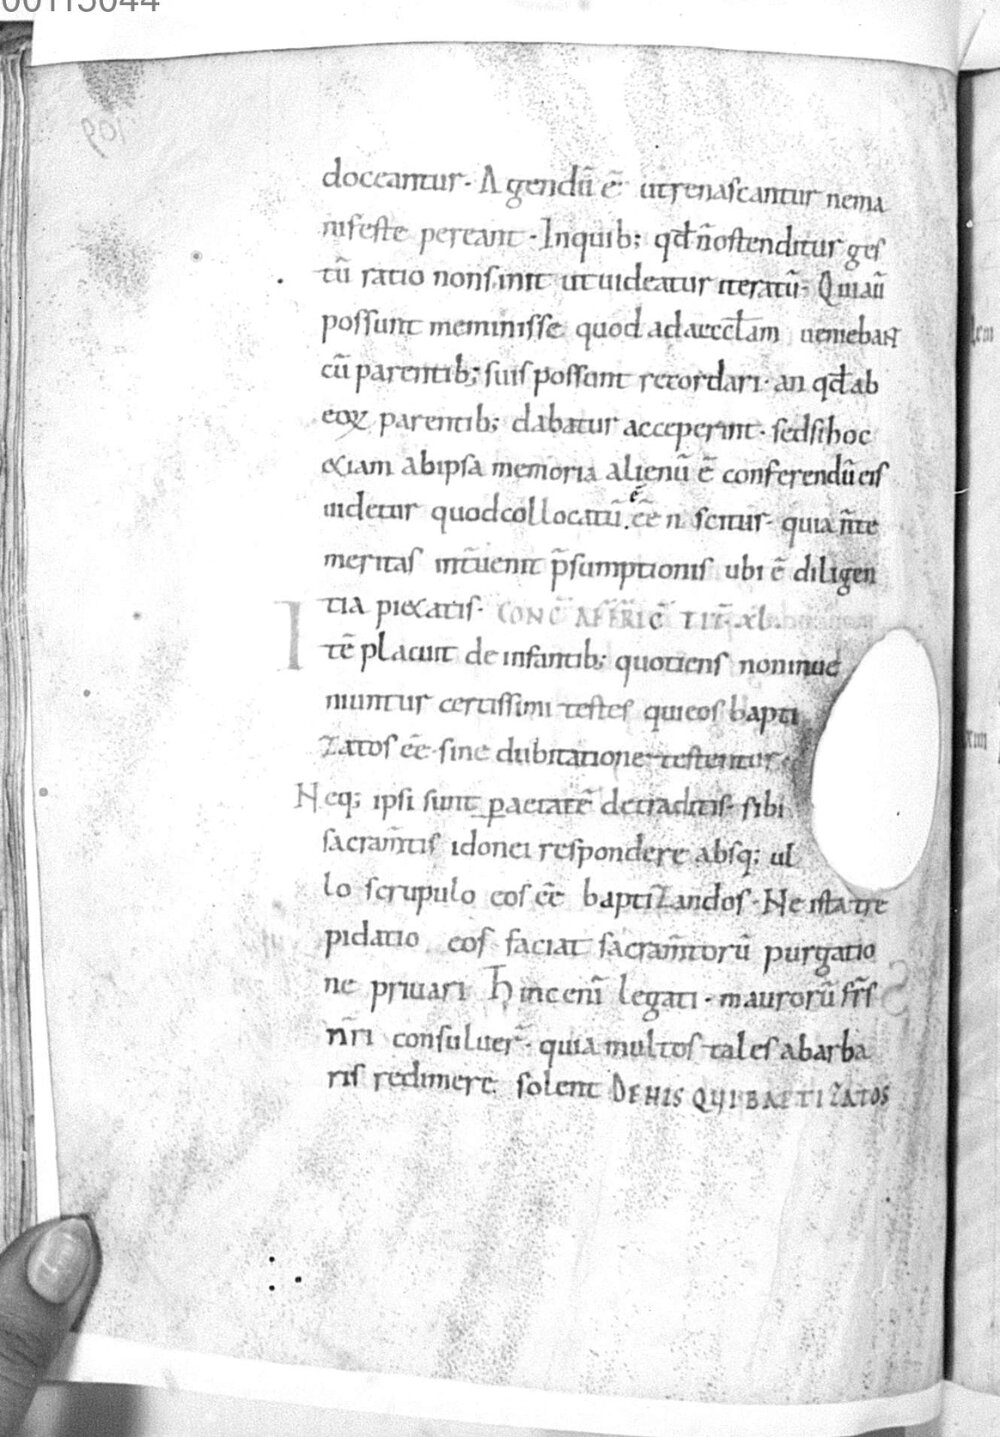 00115044
109
doceantur. Agendū ē ut renascantur ne ma
nifeste pereant. In quib; qđ ñ ostenditur ges
tū ratio non sinit ut uideatur iteratū. Qui aū
possunt meminisse quod ad aeccłam ueniebant
cū parentib; suis possunt recordari. an qđ ab
eoꝝ parentib; dabatur acceperint. sed si hoc
etiam ab ipsa memoria alienū ē conferendū eis
uidetur quod collocatū ēē n scitur. quia ñ te
meritas int̄uenit p̄sumptionis ubi ē diligen
tia pietatis. CONC̄ AFFRIC̄ TIT̄ xl.
Itē placuit de infantib; quotiens non inue
niuntur certissimi testes qui eos bapti
zatos ēē sine dubitatione testentur
Neq; ipsi sunt ꝑ aetatē de traditis sibi
sacram̄tis idonei respondere absq; ul
lo scrupulo eos ēē baptizandos. Ne ista tre
pidatio eos faciat sacram̄torū purgatio
ne priuari hinc eni legati. maurorū fr̄s
nr̄i consuluer̄. quia multos tales a barba
ris redimere solent DE HIS QUI BAPTIZATOS